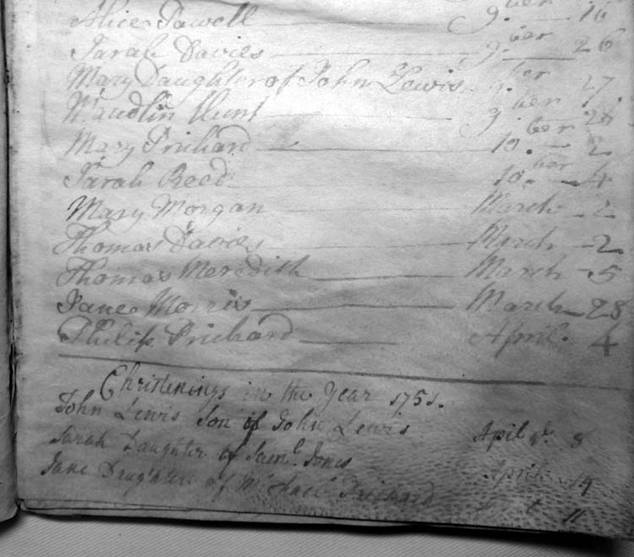 Alice Powell 9.ber 16
Sarah Davies 9.ber 26
Mary Daughter of John Lewis 9.ber 27
Maudlin Hunt 9.ber 28
Mary Prichard 10.ber 2
Sarah Reed 10.ber 4
Mary Morgan March 2
Thomas Davies March 2
Thomas Meredith March 5
Jane Morris March 28
Philip Prichard April 4
Christenings in the Year 1751.
John Lewis Son of John Lewis April 8
Sarah Daughter of Saml Jones April 14
Jane Daughter of Michael Prichard 11